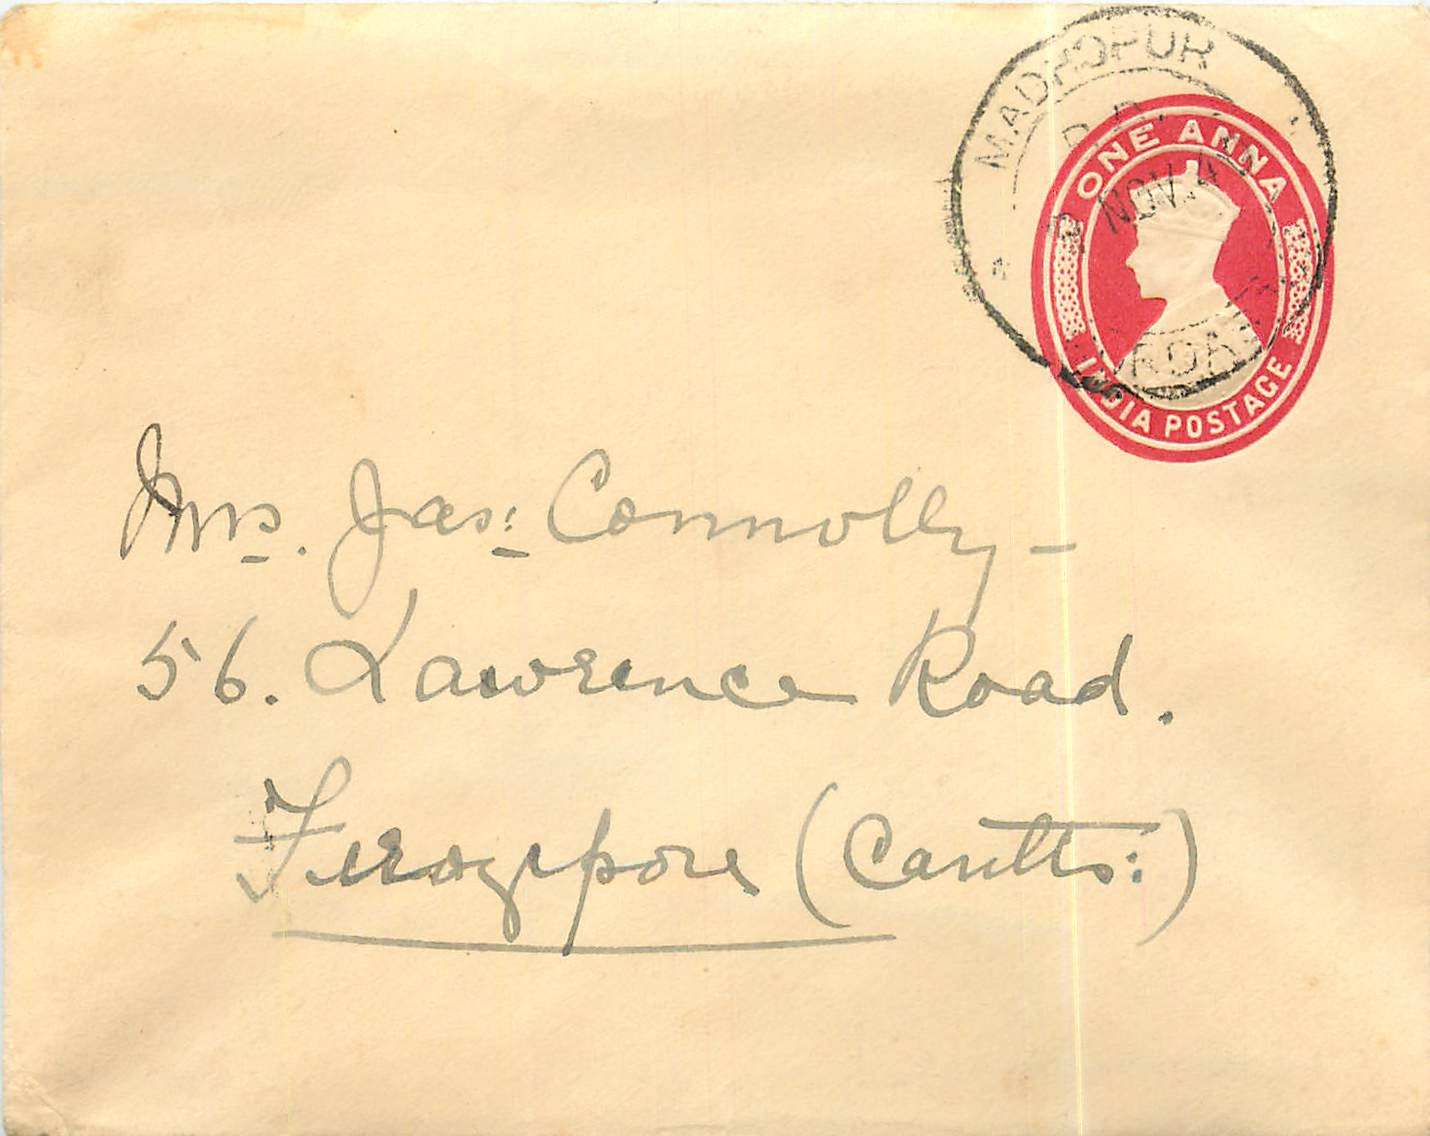 MADHOPUR
ONE ANNA
NOV. 4
INDIA POSTAGE
Mrs. Jas: Connolly -
56. Lawrence Road.
Ferozepore (Cantts:)